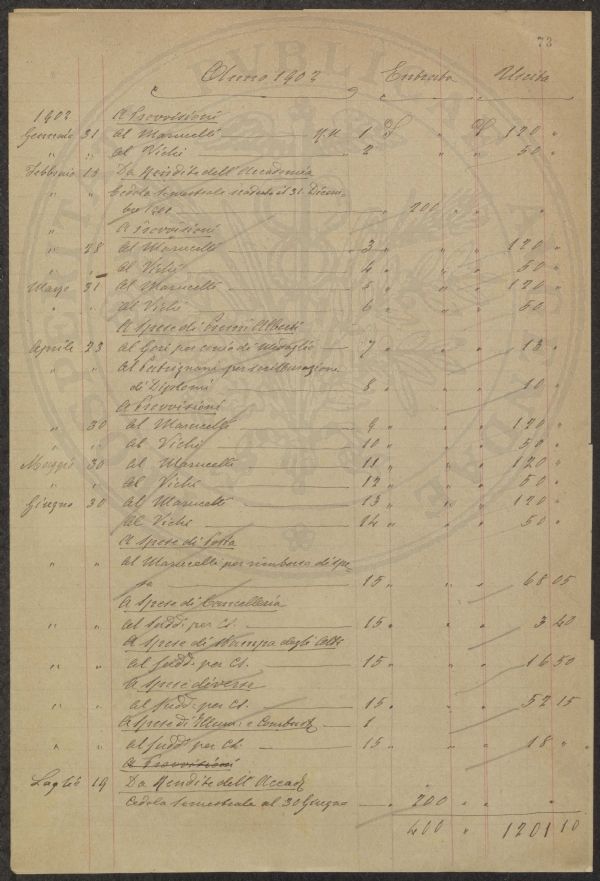 73
Anno 1902 Entrata Uscita
1902 A Provvisioni
Gennaio 31 Al Marucelli N.º 1 £ " £ 120 "
" " Al Vichi " 2 " " " 50 "
Febbraio 13 Da Rendite dell'Accademia
" " Cedola semestrale scaduta il 31 Dicem-
bre 1901 " 200 " " "
" A Provvisioni
" 28 Al Marucelli 3 " " " 120 "
" " Al Vichi 4 " " " 50 "
Marzo 31 Al Marucelli 5 " " " 120 "
" " Al Vichi 6 " " " 50
A Spese di Premi Alberti
Aprile 23 Al Gori per conio di Medaglie 7 " " " 13 "
" " Al per
di Diplomi 8 " " " 10 "
A Provvisioni
" 30 Al Marucelli 9 " " " 120 "
" " Al Vichi 10 " " " 50 "
Maggio 30 Al Marucelli 11 " " " 120 "
" " Al Vichi 12 " " " 50 "
Giugno 30 Al Marucelli 13 " " " 120 "
Al Vichi 14 " " " 50 "
A Spese di Posta
" " Al Marucelli per rimborso di spe-
sa 15 " " " 68 05
A Spese di Cancelleria
" " Al sudd. per Ct. 15 " " " 3 40
A Spese di Stampa degli Atti
" " Al sudd. per Ct. 15 " " " 16 50
A Spese diverse
" " Al sudd. per Ct. 15 " " " 52 15
A Spese di Illum. e Combust. 1
" " Al sudd. per Ct. 15 " " " 18 "
A Provvisioni
Luglio 19 Da Rendite dell'Accad.
Cedola semestrale al 30 Giugno " 200 " " "
400 " 1201 10